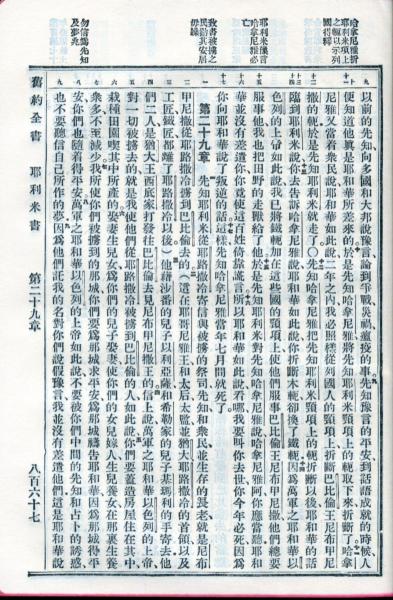 哈拿尼雅折
耶利米項上
之軛以示列
國得釋
耶利米儆言
哈拿尼雅必
亡
致書被擄之
民勸其安居
毋躁
勿信爲先知
及夢兆
以前的先知向多國和大邦說豫言論到爭戰災禍瘟疫的事先知豫言的平安到話語成就的時候人
便知道他真是耶和華所差來的於是先知哈拿尼雅將先知耶利米頸項上的軛取下來折斷了哈拿
尼雅又當着衆民說耶和華如此說二年之內我必照樣從列國人的頸項上折斷巴比倫王尼布甲尼
撒的軛於是先知耶利米就走了〇先知哈拿尼雅把先知耶利米頸項上的軛折斷以後耶和華的話
臨到耶利米說你去告訴哈拿尼雅說耶和華如此說你折斷木軛卻換了鐵軛因爲萬軍之耶和華以
色列的上帝如此說我已將鐵軛加在這些國的頸項上使他們服事巴比倫王尼布甲尼撒他們總要
服事他我也把田野的走獸給了他於是先知耶利米對先知哈拿尼雅說哈拿尼雅阿你應當聽耶和
華並沒有差遣你你竟使這百姓倚靠謊言所以耶和華如此說看哪我要叫你去世你今年必死因爲
你向耶和華說了叛逆的話這樣先知哈拿尼雅當年七月間就死了
第二十九章 先知耶利米從耶路撒冷寄信與被擄的祭司先知和衆民並生存的長老就是尼布
甲尼撒從耶路撒冷擄到巴比倫去的(這在耶哥尼雅王和太后太監並猶大耶路撒冷的首領以及
工匠鐵匠都離了耶路撒冷以後)他藉沙番的兒子以利亞薩和希勒家的兒子基瑪利的手寄去他
們二人是猶大王西底家打發往巴比倫去見尼布甲尼撒王的信上說萬軍之耶和華以色列的上帝
對一切被擄去的就是我使他們從耶路撒冷被擄到巴比倫的人如此說你們要蓋造房屋住在其中
栽種田園喫其中所產的娶妻生兒女爲你們的兒子娶妻使你們的女兒嫁人生兒養女在那裏生養
衆多不至減少我所使你們被擄到的那城你們要爲那城求平安爲那城禱告耶和華因爲那城得平
安你們也隨着得平安萬軍之耶和華以色列的上帝如此說不要被你們中間的先知和占卜的誘惑
也不要聽信自己所作的夢因爲他們託我的名對你們說假豫言我並沒有差遣他們這是耶和華說
舊約全書 耶利米書 第二十九章 八百六十七